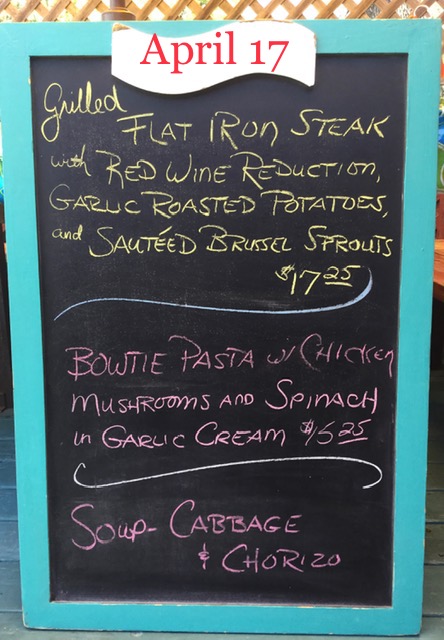 April 17
Grilled
FLAT IRON STEAK
with RED WINE REDUCTION,
GARLIC ROASTED POTATOES,
and SAUTÉED BRUSSEL SPROUTS
$17.25
BOWTIE PASTA w/ CHICKEN
MUSHROOMS AND SPINACH
in GARLIC CREAM $15.25
SOUP- CABBAGE
& CHORIZO